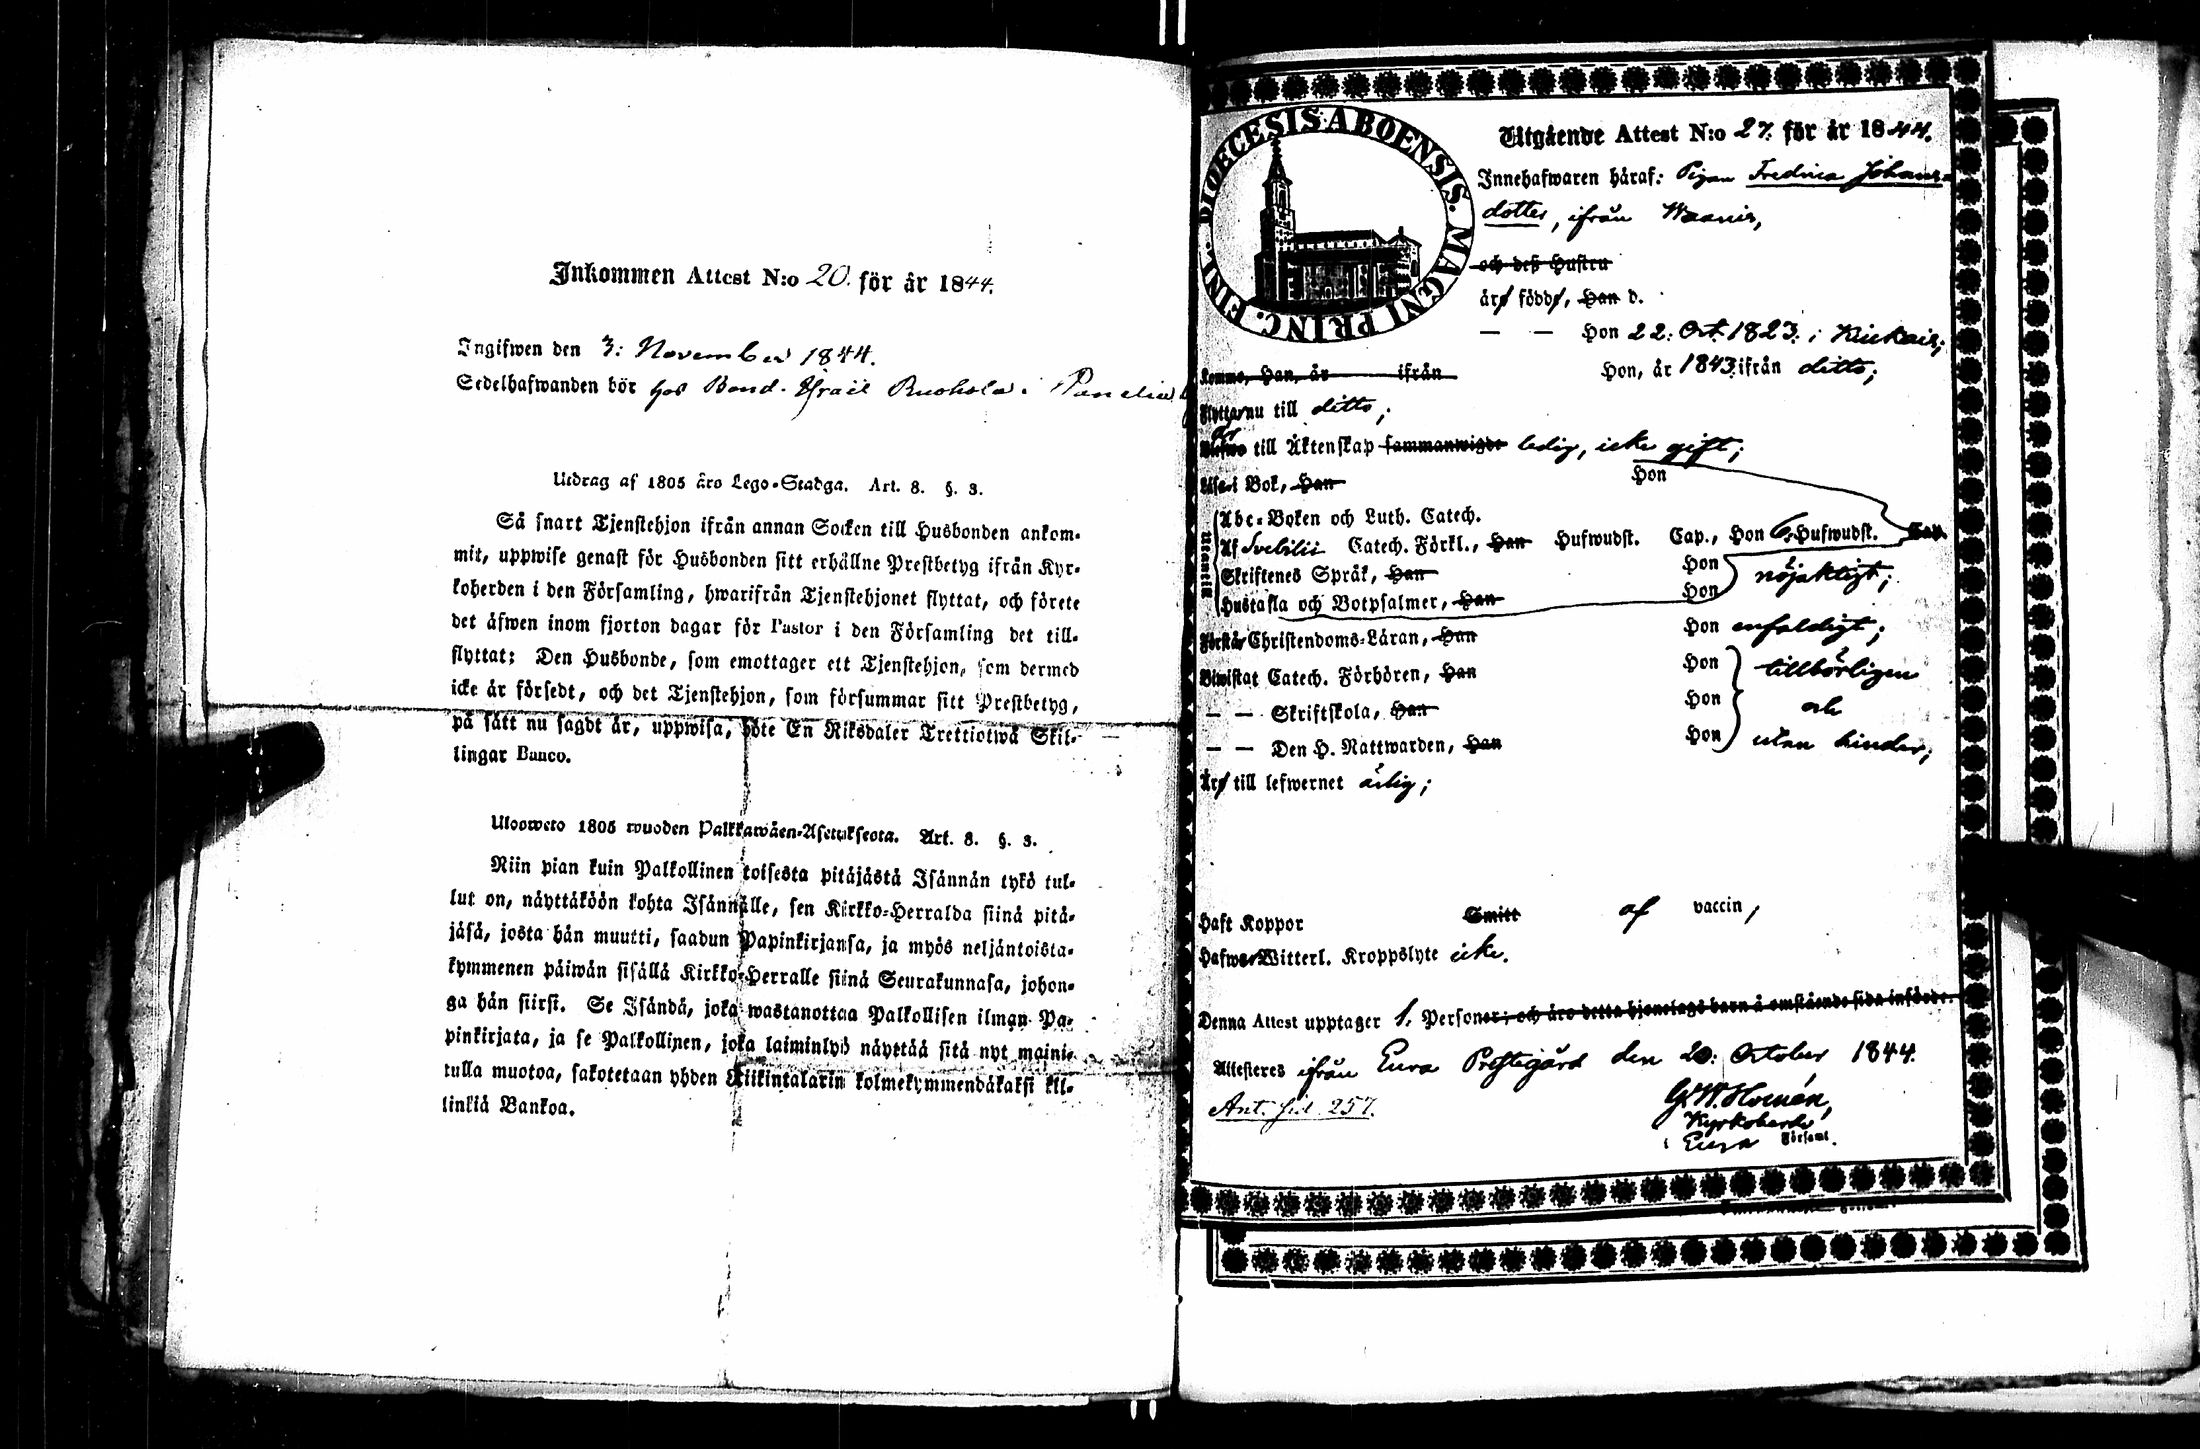 Inkommen Attest N:o 20. för år 1844.
Ingifwen den 3: November 1844.
Sedelhafwanden bör hos Bond. Israel Ruohola i Panelia
Utdrag af 1805 års Lego-Stadga. Art. 8. §. 3.
Så snart Tjenstehjon ifrån annan Socken till Husbonden ankom-
mit, uppwise genast för Husbonden sitt erhållne Prestbetyg ifrån Kyr-
koherden i den Församling, hwarifrån Tjenstehjonet flyttat, och förete
det äfwen inom fjorton dagar för Pastor i den Församling det till-
flyttat: Den Husbonde, som emottager ett Tjenstehjon, som dermed
icke är försedt, och det Tjenstehjon, som försummar sitt Prestbetyg,
på sätt nu sagdt är, uppwisa, böte En Riksdaler Trettiotwå Skil-
lingar Banco.
Ulosweto 1805 wuoden Palkkawäen-Asetuksesta. Art. 8. §. 3.
Niin pian kuin Palkollinen toisesta pitäjästä Isännän tykö tul-
lut on, näyttäköön kohta Isännälle, sen Kirkko-Herralda siinä pitä-
jäsä, josta hän muutti, saadun Papinkirjansa, ja myös neljäntoista-
kymmenen päiwän sisällä Kirkko-Herralle siinä Seurakunnasa, johon-
ga hän siirsi. Se Isändä, joka wastanottaa Palkollisen ilman Pa-
pinkirjata, ja se Palkollinen, joka laiminlyö näyttää sitä nyt maini-
tulla muotoa, sakotetaan yhden Riikintalarin kolmekymmendäkaksi kil-
linkiä Bankoa.
DIOECESIS ABOENSIS. MAGNI PRINC. FINL.
Utgående Attest N:o 27. för år 1844.
Innehafwaren håraf: Pigan Fredrica Johans-
dotter, ifrån
och deß Hustru
äro födde, Han d.
— — Hon 22: Oct. 1823. i Kiukais;
Komme, Han, år ifrån Hon, år 1843. ifrån ditto;
Flytta nu till ditto;
är
Blefwo till Äktenskap sammanwigde ledig, icke gift;
Läsa i Bok, Han Hon
Abc-Boken och Luth. Catech.
Utantill
Af Svebilii Catech. Förkl., Han Hufwudst. Cap., Hon 6. Hufwudst. Cap.
Skriftenes Språk, Han Hon nöjaktigt;
Hustafla och Botpsalmer, Han Hon
Förstår Christendoms-Läran, Han Hon enfaldigt;
Biwistat Catech. Förhören, Han Hon tillbörligen
— — Skriftskola, Han Hon och
— — Den H. Nattwarden, Han Hon utan hinder;
Äro till lefwernet ärlig;
Haft Koppor Smitt af vaccin;
Hafwa Witterl. Kroppslyte icke.
Denna Attest upptager 1. Personer; och äro detta hjonelags barn å omstående sida införde.
Attesteres ifrån Eura Prestegård den 20: October 1844.
Ant. sid. 257.
Kyrkoherde
i Eura Församl.